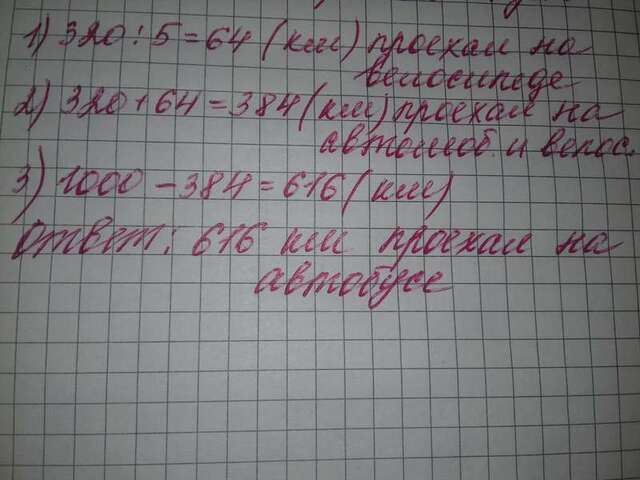 1) 320 : 5 = 64 (км) проехал на
велосипеде
2) 320 + 64 = 384 (км) проехал на
автомоб. и велос.
3) 1000 - 384 = 616 (км)
Ответ: 616 км проехал на
автобусе